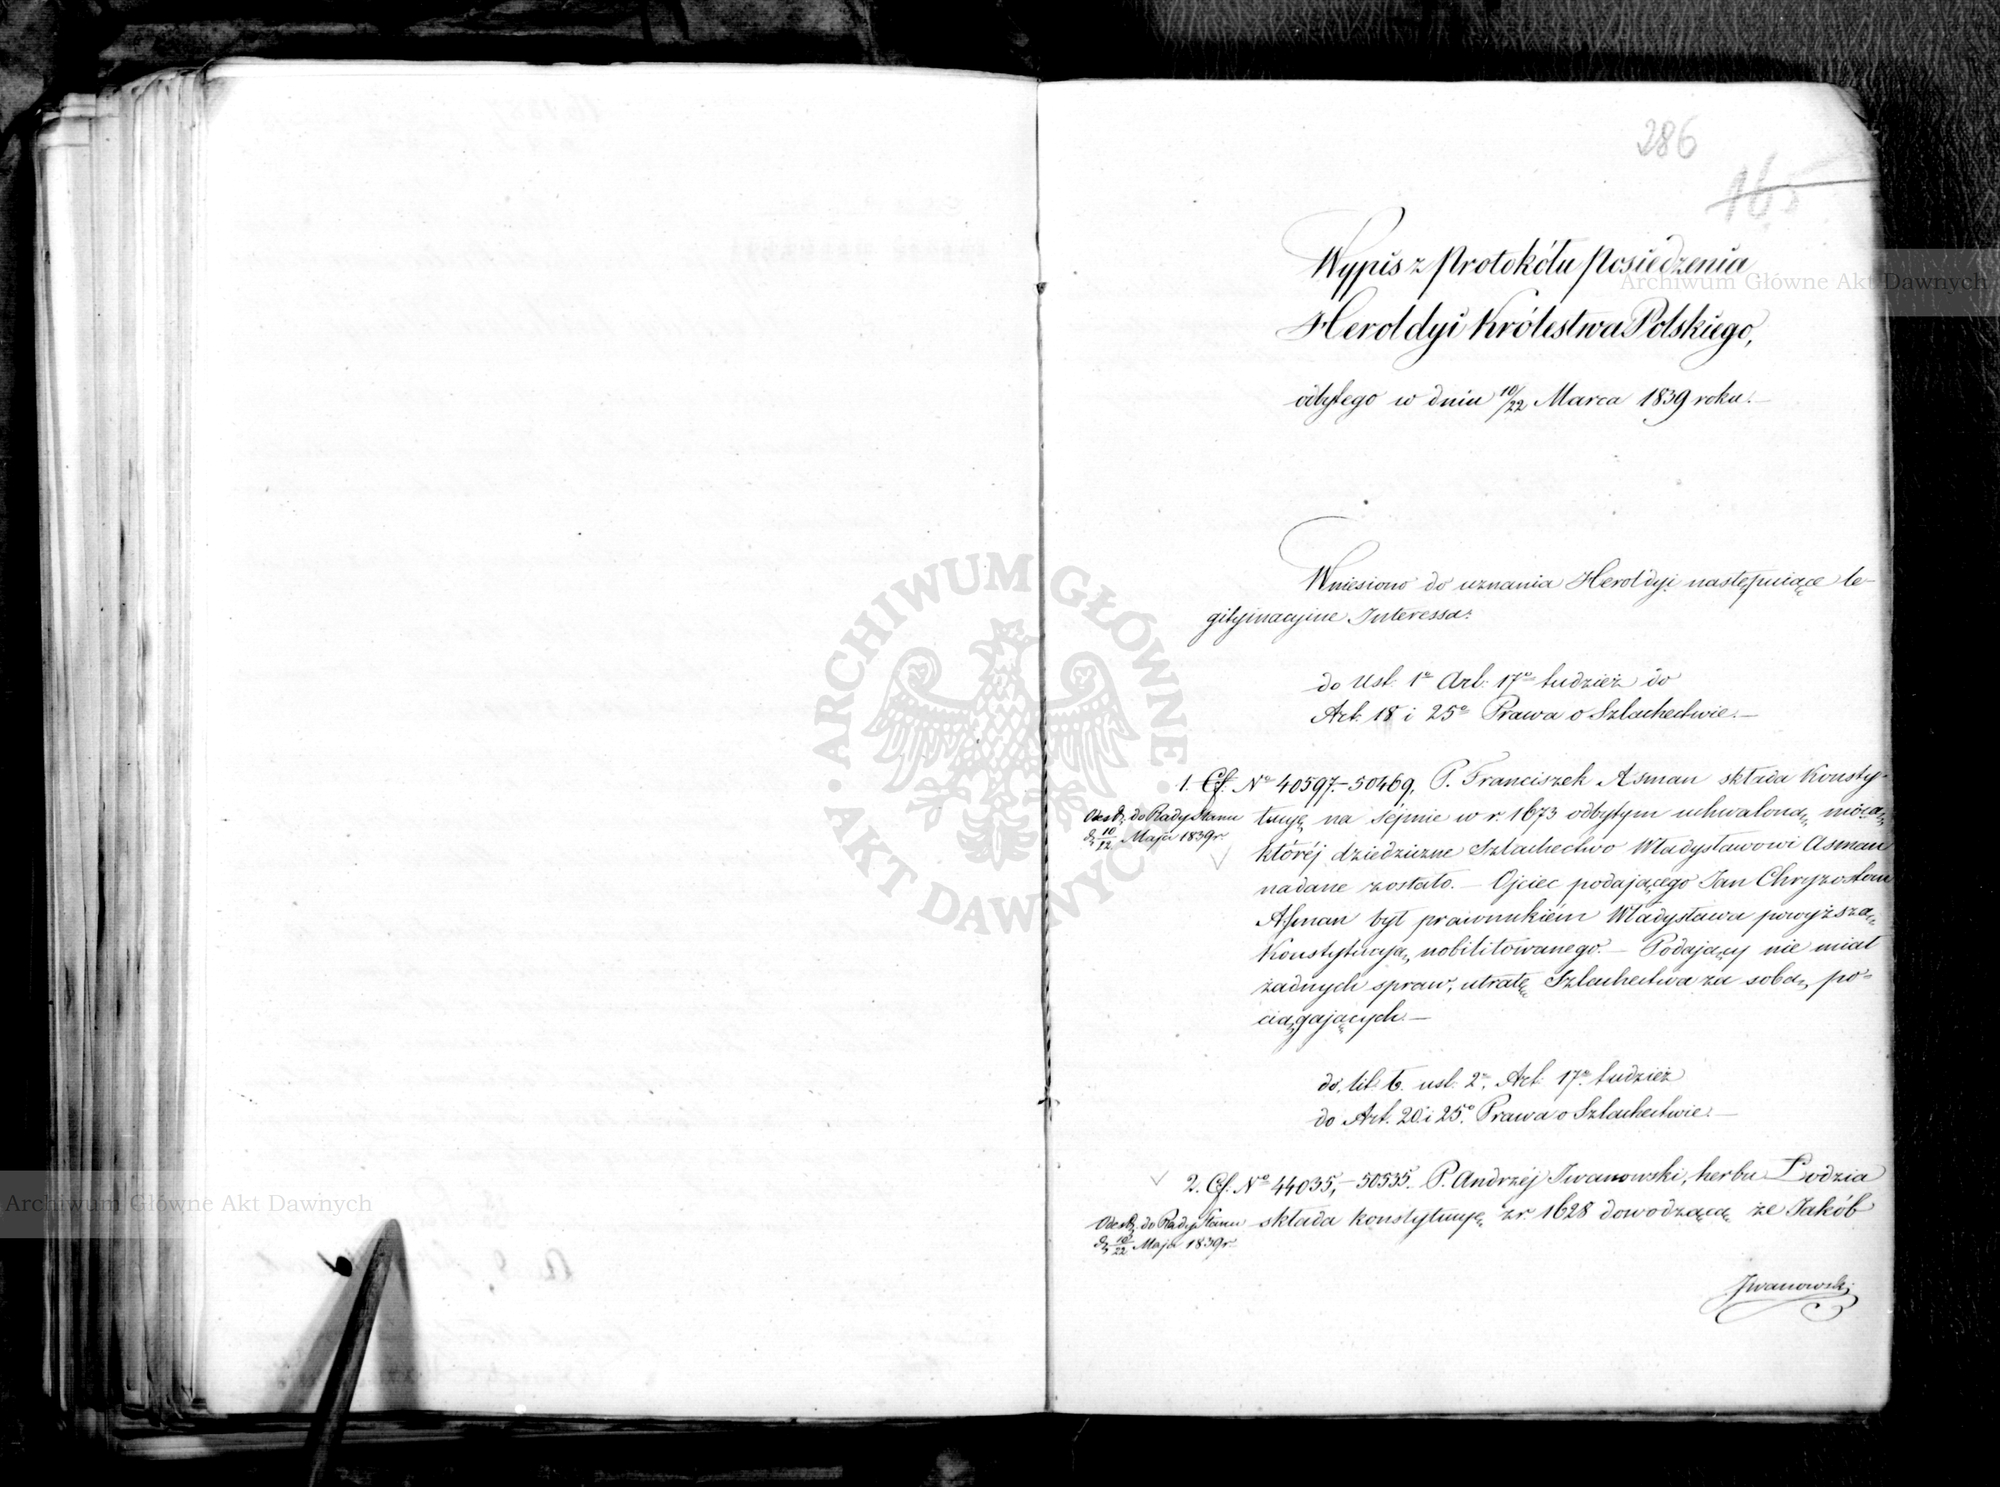 286
165
Wypis z Protokółu Posiedzenia
Heroldyi Królestwa Polskiego,
odbytego w dniu 10/22 Marca 1839 roku.—
Wniesiono do uznania Heroldyi następuiące le-
gitymacyine Interessa:
do Ust. 1º Art. 17º tudzież do
Art. 18 i 25º Prawa o Szlachectwie.—
1. Cf. Nº 40597.—50469, P. Franciszek Asman składa Konsty-
tucyę na sejmie w r. 1673 odbytym uchwaloną, mocą
Odesł. do Rady Stanu
d. 10/22 Maja 1839 r.
któréj dziedziczne Szlachectwo Władysławowi Asman
nadane zostało.— Ojciec podającego Jan Chryzostom
Asman był prawnukiem Władysława powyższą
Konstytucyą nobilitowanego.— Podający nie miał
żadnych spraw, utratę Szlachectwa za sobą po-
ciągających.—
do lit. b. ust. 2º, Art. 17º tudzież
do Art. 20. i 25º. Prawa o Szlachectwie.—
2. Cf. Nº 44035,—50535. P. Andrzéj Iwanowski, herbu Łodzia
składa konstytucyę z r. 1628 dowodzącą że Jakób
Odesł. do Rady Stanu
d. 10/22 Maja 1839 r.
Iwanowski
Archiwum Główne Akt Dawnych
Archiwum Główne Akt Dawnych
ARCHIWUM GŁÓWNE AKT DAWNYCH